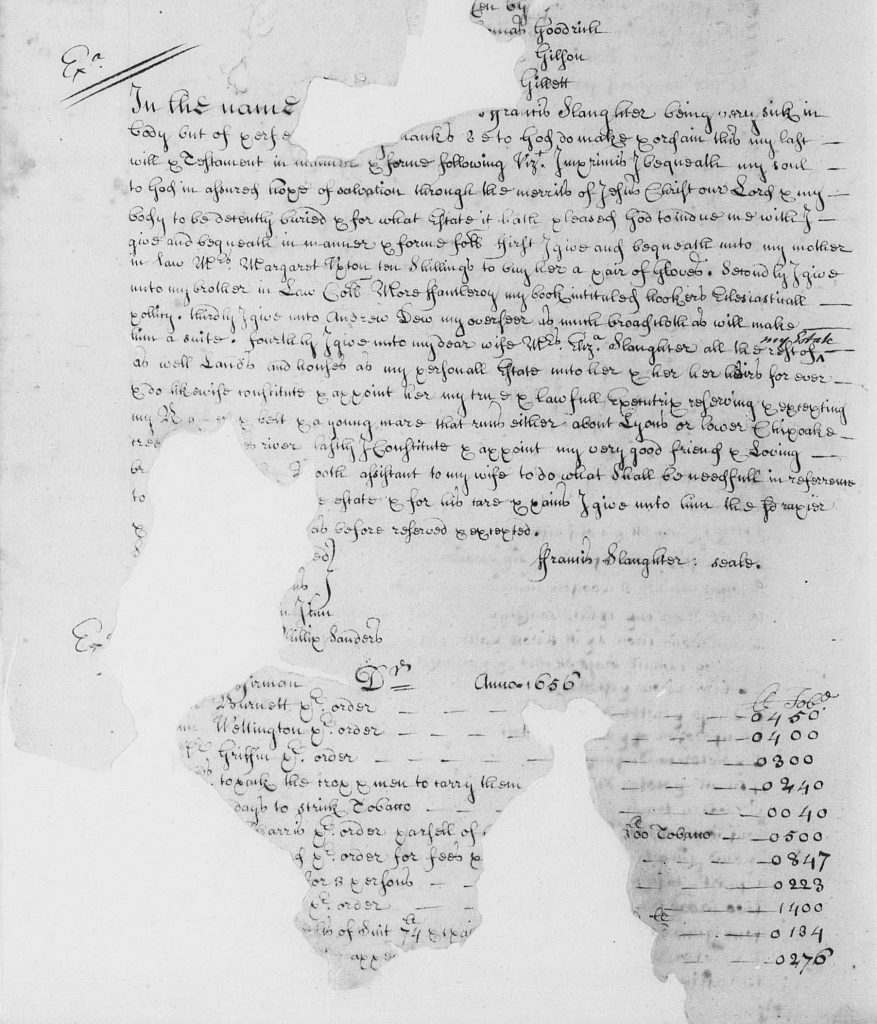 ten by
mas Goodrich
Gilson
Gillett
Exa.
In the name Francis Slaughter being very sick in
body but of perfe thanks be to God do make & ordain this my last
will & Testament in manner & forme following Vizt. Imprimis I bequeath my soul
to God in assured hope of salvation through the merrits of Jesus Christ our Lord & my
body to be decently buried & for what Estate it hath pleased God to indue me with I
give and bequeath in manner & forme foll: first I give and bequeath unto my mother
in law Mrs. Margaret Upton ten Shillings to buy her a pair of Gloves. Secondly I give
unto my brother in Law Coll. More ffantleroy my book intituled hookers Eclesiasticall
pollity. thirdly I give unto Andrew Dew my overseer as much broadcloth as will make
him a suite. fourthly I give unto my dear wife Mrs. Eliza. Slaughter all the rest of my Estate
as well Lands and houses as my personall Estate unto her & her her heirs for ever
& do likewise constitute & appoint her my true & lawfull Executrix reserving & excepting
my & belt & a young mare that runs either about Lyons or lower Chipoake
cree river lastly I Constitute & appoint my very good friend & Loving
br Booth assistant to my wife to do what Shall be needfull in referrence
to e estate & for his care & pains I give unto him the Rapier
& as before reserved & excepted.
ed)
ffrancis Slaughter: seale.
Exa.
illip Sanders
irman Dr Anno 1656
lb Tobo.
Burnett pr. order 0450
Wellington pr. order 0400
Griffin pr. order 0300
to pack the crop & men to carry them 0240
days to strick Tobacco 0040
Harris pr. order parsell of 100 Tobacco 0500
d pr. order for fees & 0847
for 8 persons 0223
pr. order 1400
of Suit 74 & pai lb 0134
appe 0276